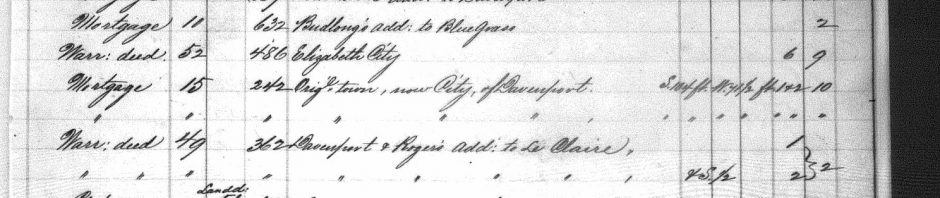 Mortgage 10 632 Budlong's add: to Blue Grass 2
Warr: deed. 52 486 Elizabeth City 6 9
Mortgage 15 242 Orig. town, now City, of Davenport. S. 104 ft. W. 41/2 ft. 1+2 10
" " " " " " " " " " " "
Warr: deed 49 362 Davenport & Roger's add: to Le Claire, 1
" " " " " " " " & S. 1/2 2 } 2
Landd: